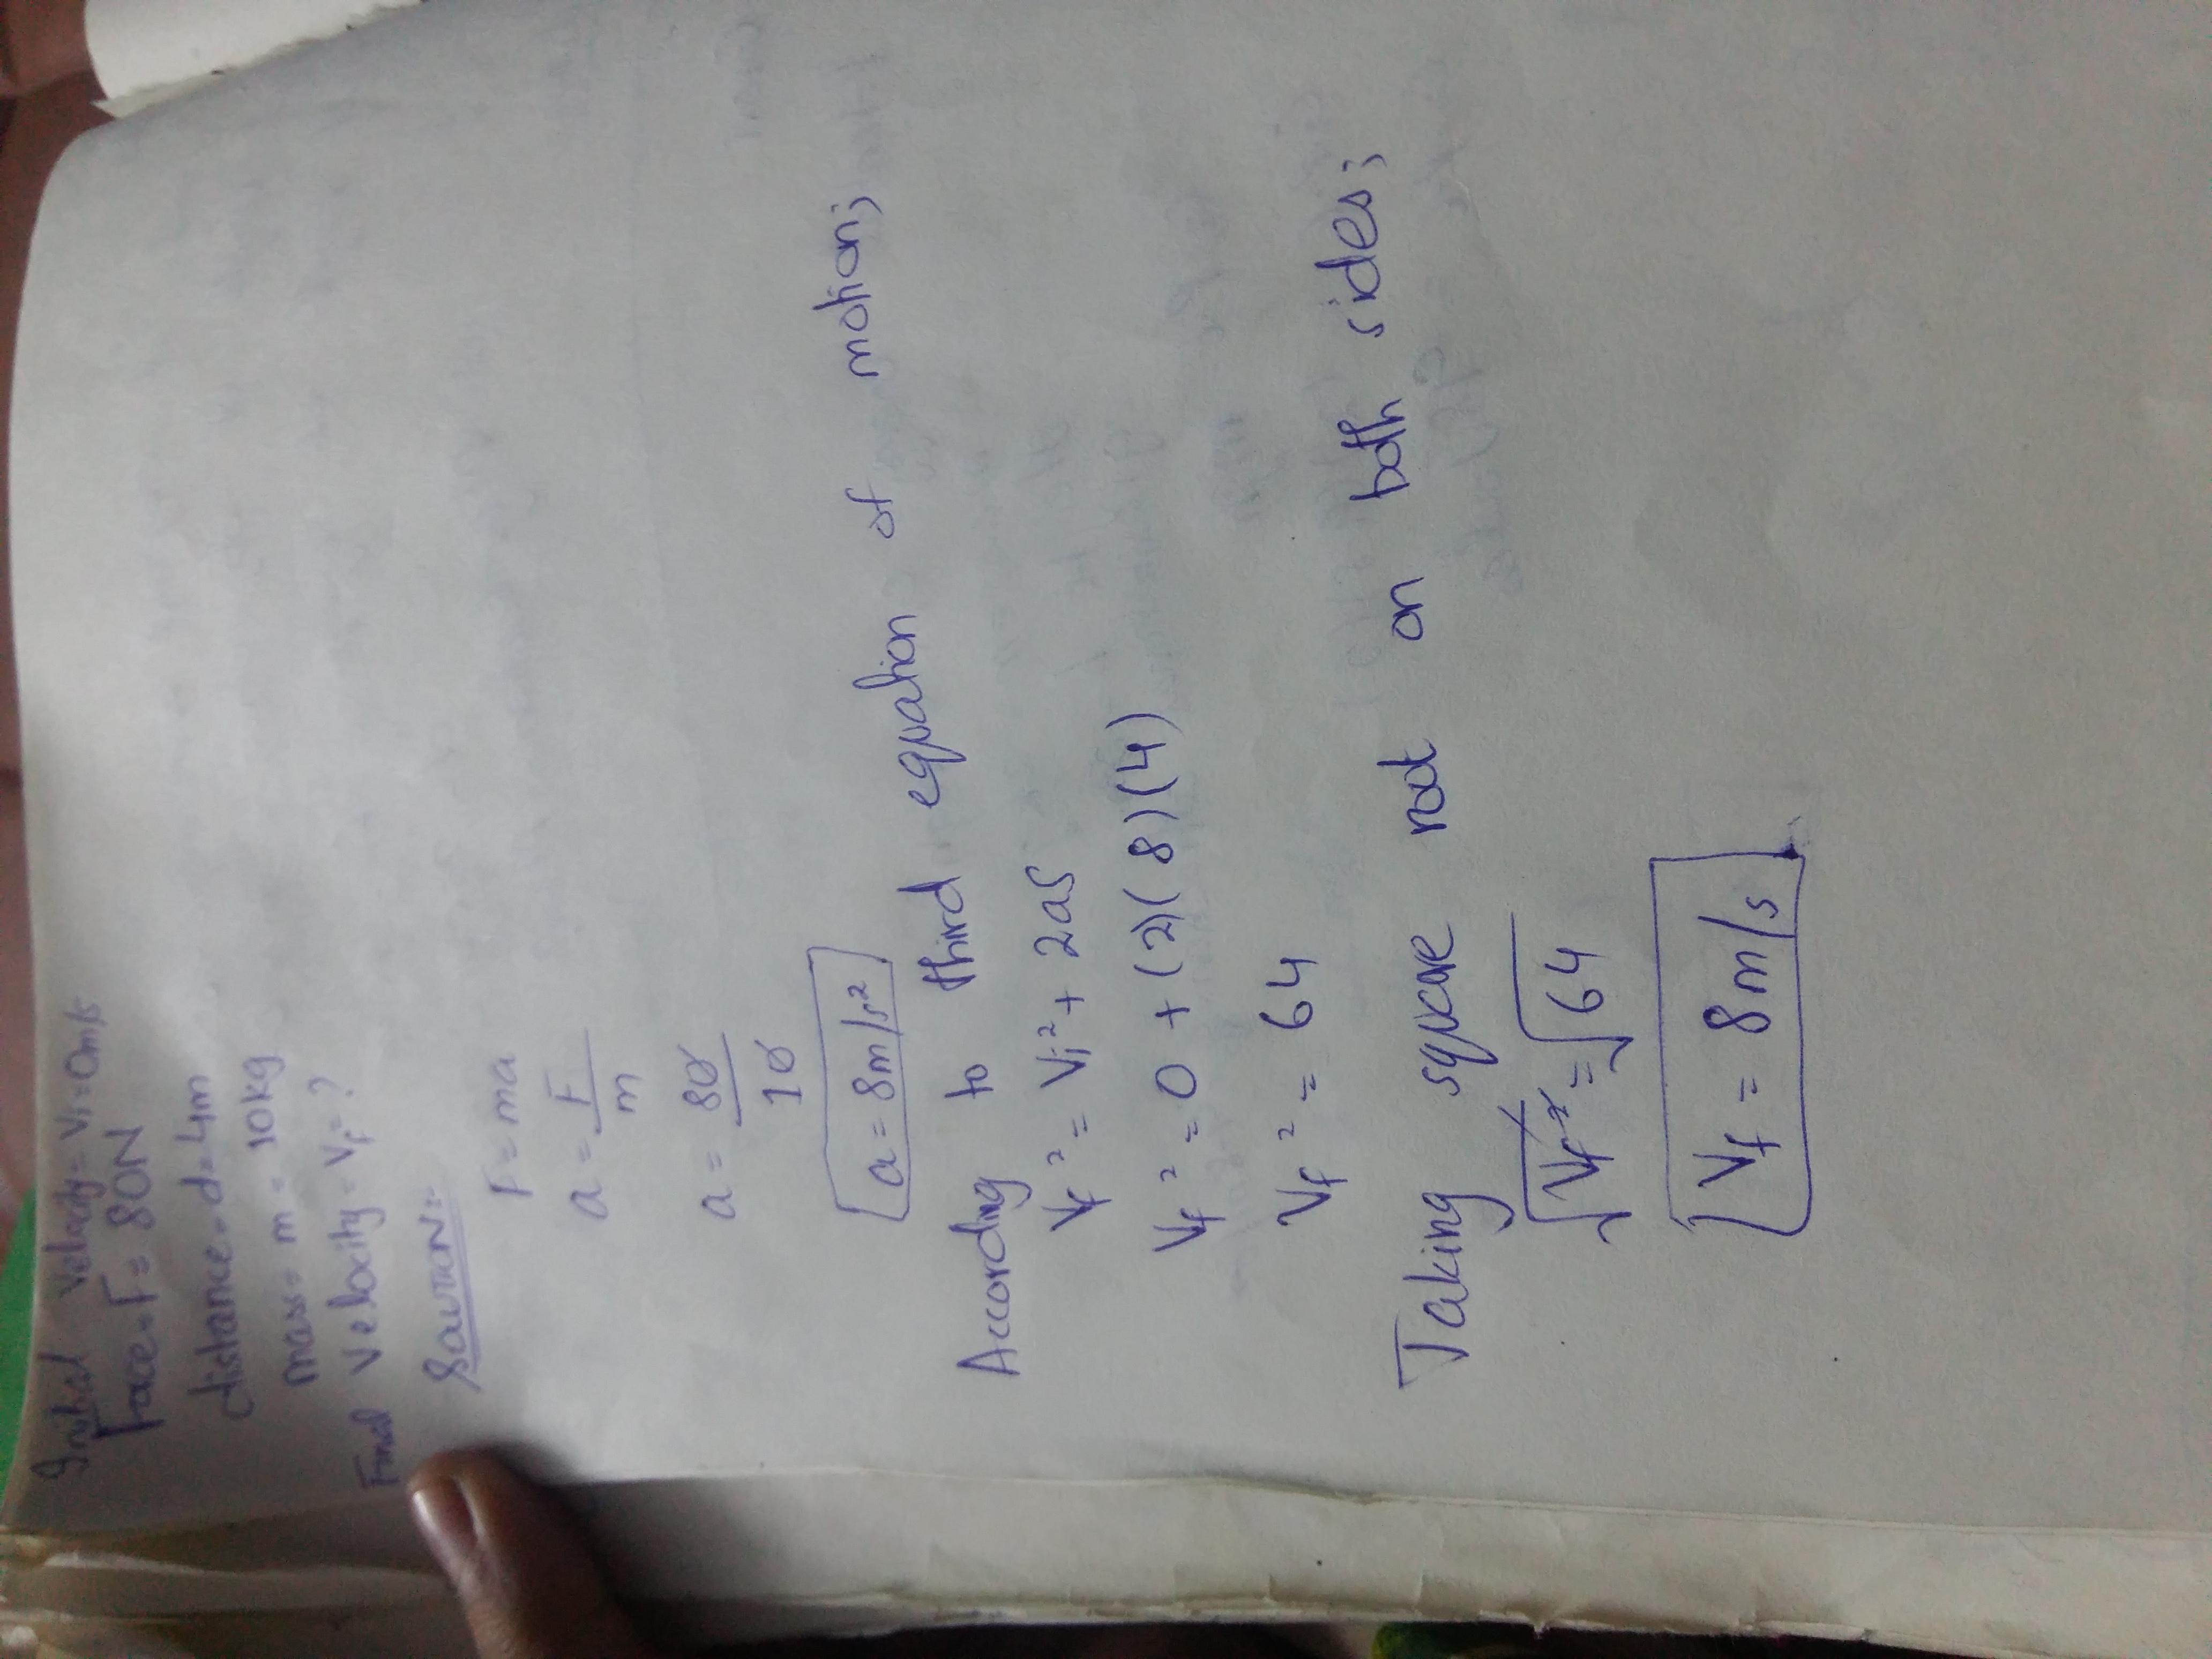 Initial Velocity = Vi = 0m/s
Force = F = 80N
distance = d = 4m
mass = m = 10kg
Final Velocity = Vf = ?
SOLUTION:-
F = ma
a = F/m
a = 80/10
a = 8m/s²
According to third equation of motion;
Vf² = Vi² + 2aS
Vf² = 0 + (2)(8)(4)
Vf² = 64
Taking square root on both sides;
√Vf² = √64
Vf = 8m/s